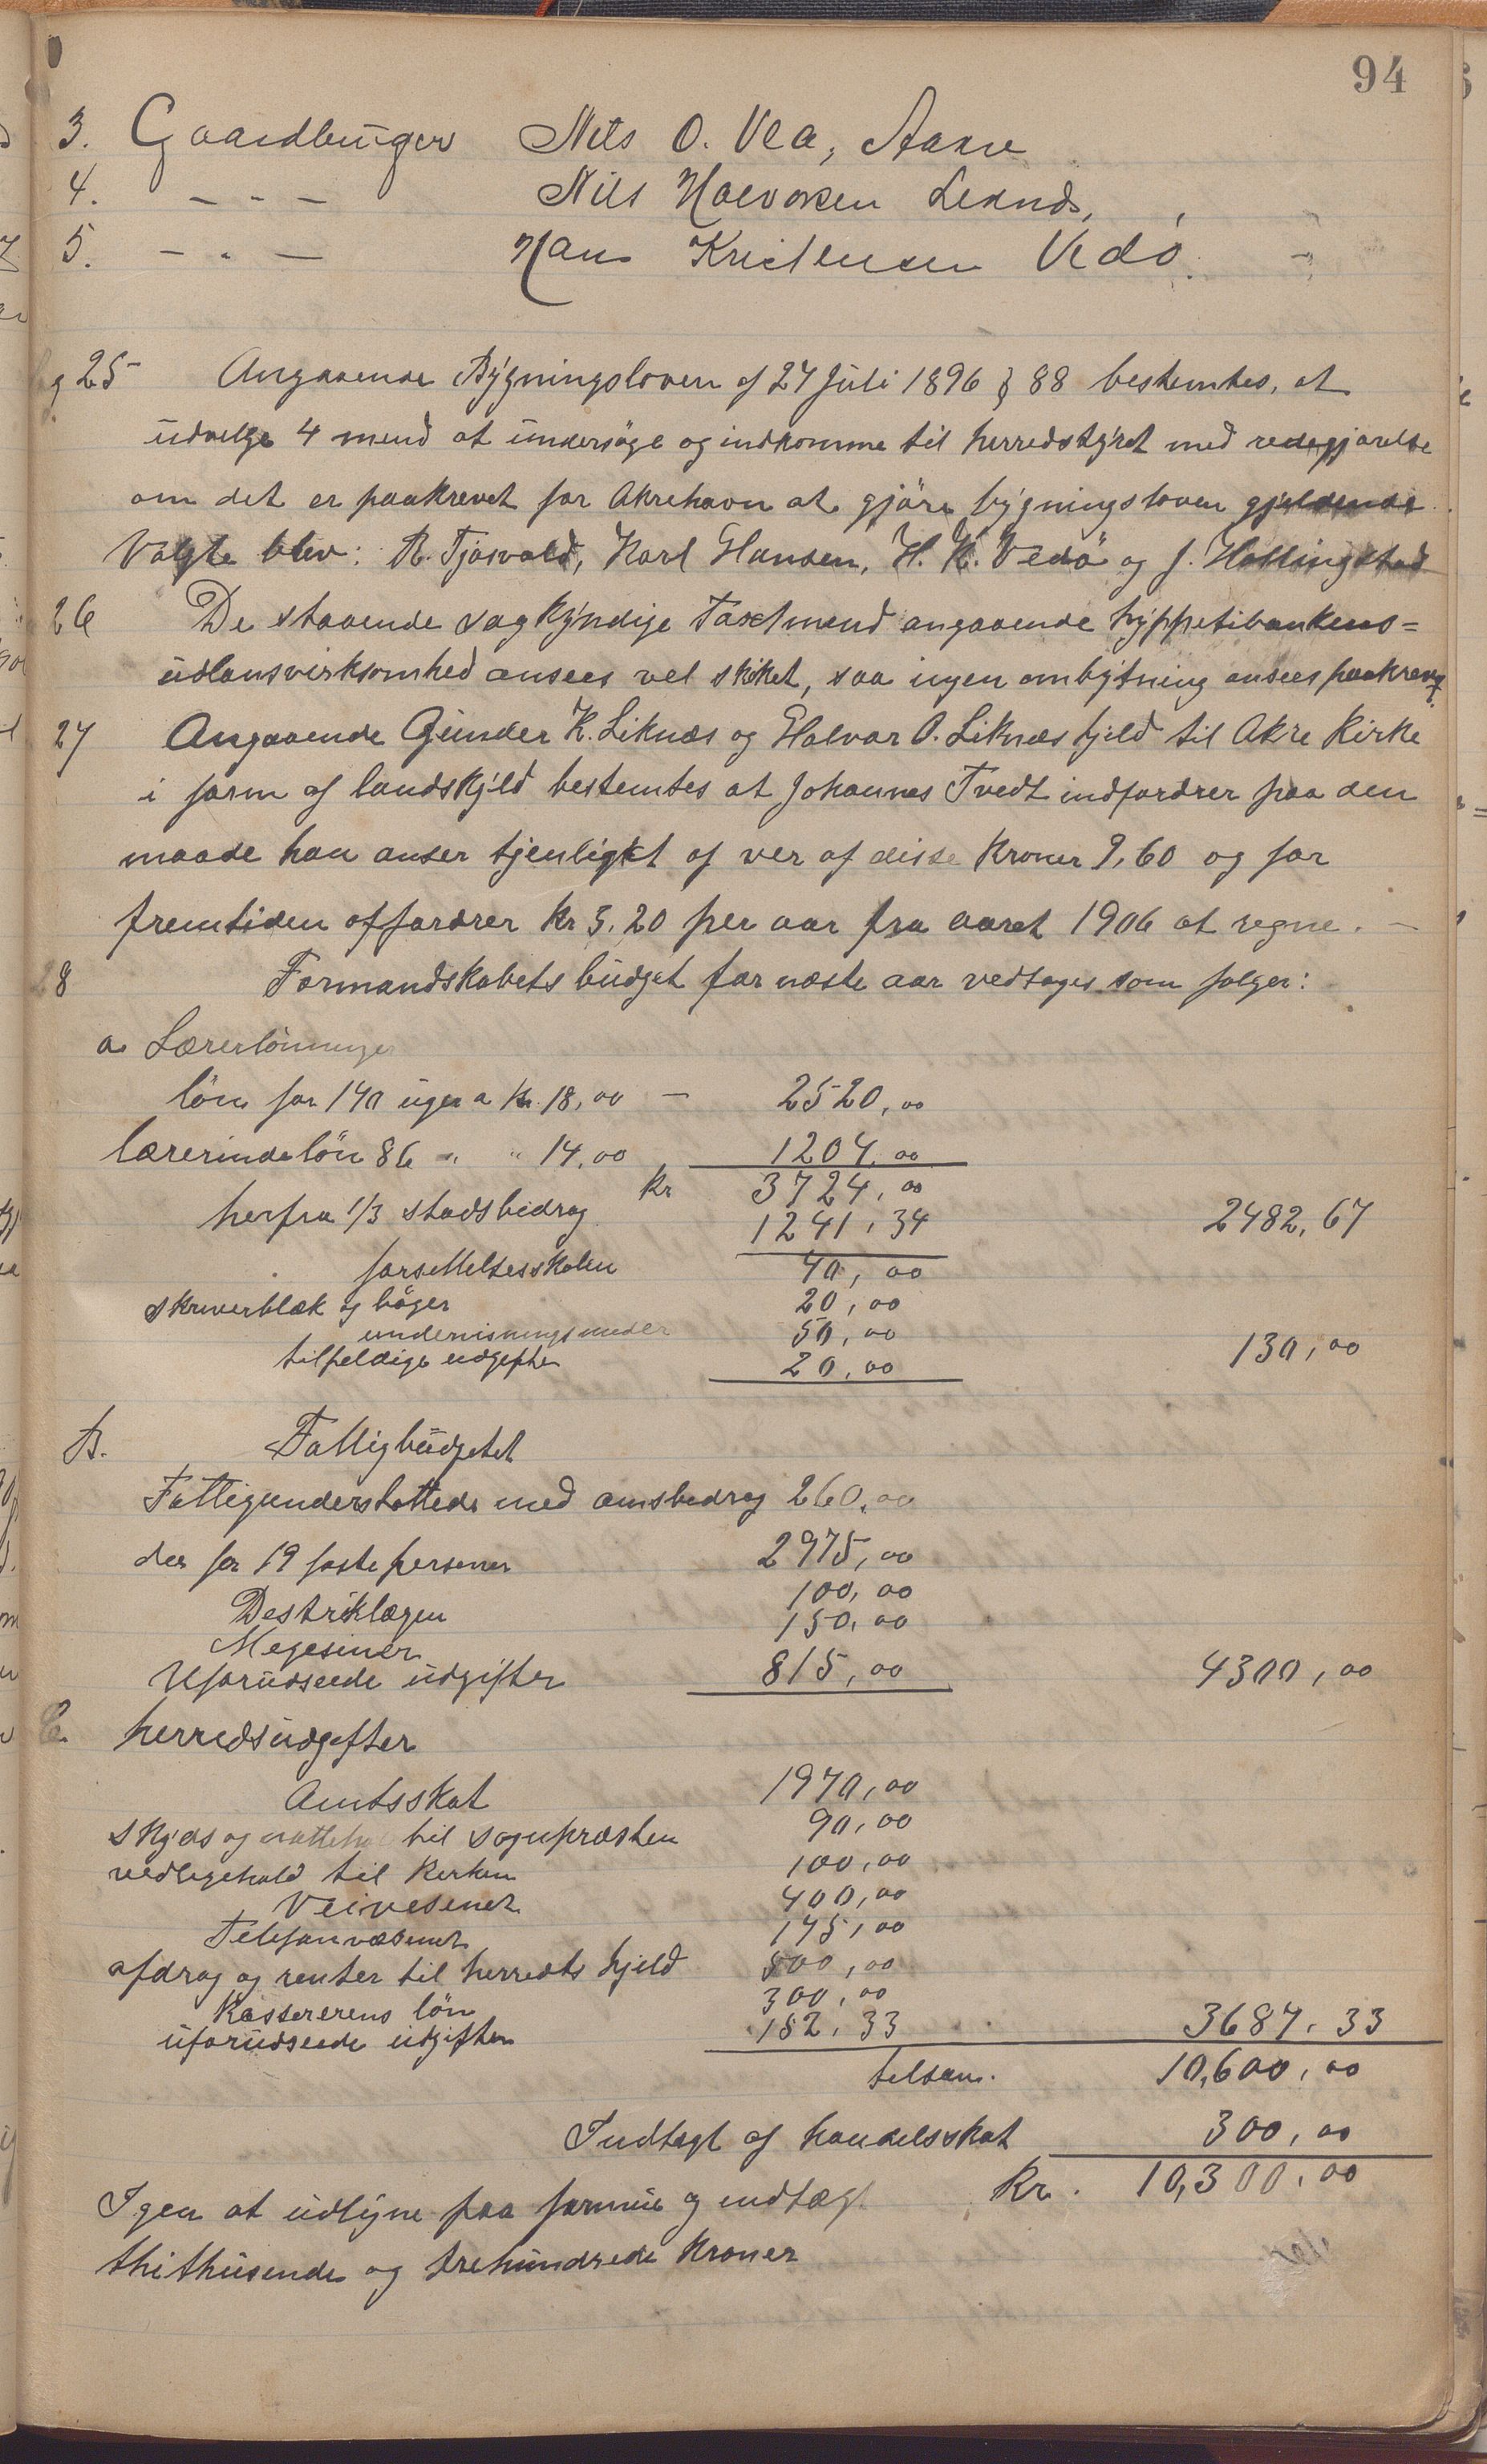 94
3. Gaardbruger Nils O. Vea, Aakre
4. - " - Nils Halvorsen Leknæs,
5. - " - Hans Kristensen Vedö
25 Angaaende Bygningsloven af 27 Juli 1896 § 88 bestemtes, at
udvelge 4 mend at undersöge og indkomme til herredstyret med redegjörelse
om det er paakrevet for Akrehavn at gjöre bygningsloven gjeldende.
Valgte blev: R. Tjøsvold, Karl Hansen, H. K. Vedö og J. Hallingstad
26 De staaende sagkyndige Taxtmend angaaende hyppetibankens=
udlansvirksomhed ansees vel skiket, saa ingen ombytning ansees paakrevet.
27 Angaaende Gunder K. Liknæs og Halvor O. Liknæs gjeld til Akre Kirke
i form af landskyld bestemtes at Johannes Tvedt indfordrer paa den
maade han anser tjenligst af ver af disse Kroner 9,60 og for
fremtiden affordrer Kr 3.20 per aar fra aaret 1906 at regne. -
28 Formandskabets budget for næste aar vedtages som folger:
a Lærerlönninger
lön for 140 uger a Kr. 18,00 - 2520,00
lærerindelön 86 " " 14,00 1204,00
Kr 3724,00
herfra 1/3 stadsbidrag 1241,34 2482,67
forsettelsesskolen 40,00
skriverblæk og böger 20,00
undervisningsmidler 50,00
tilfeldige udgefter 20,00 130,00
B. Fattigbudgetet
Fattigunderstottede med amsbedrag 260,00
der for 19 faste personer 2975,00
Destriklægen 100,00
Megesiner 150,00
Uforudseede udgifter 815,00 4300,00
C. herredsudgefter
Amtsskat 1970,00
skyds og nattehol til sognpræsten 90,00
vedlegehold til Kerken 100,00
Veivesenet 400,00
Telefonvæsenet 145,00
afdrag og renter til herredts gjeld 500,00
Kassererens lön 300,00
uforudseede udgifter 182,33 3687,33
telsam. 10,600,00
Indtægt af handelsskat 300,00
Kr. 10,300,00
Igen at udligne paa formue og indtægt
thithusende og trehundrede Kroner